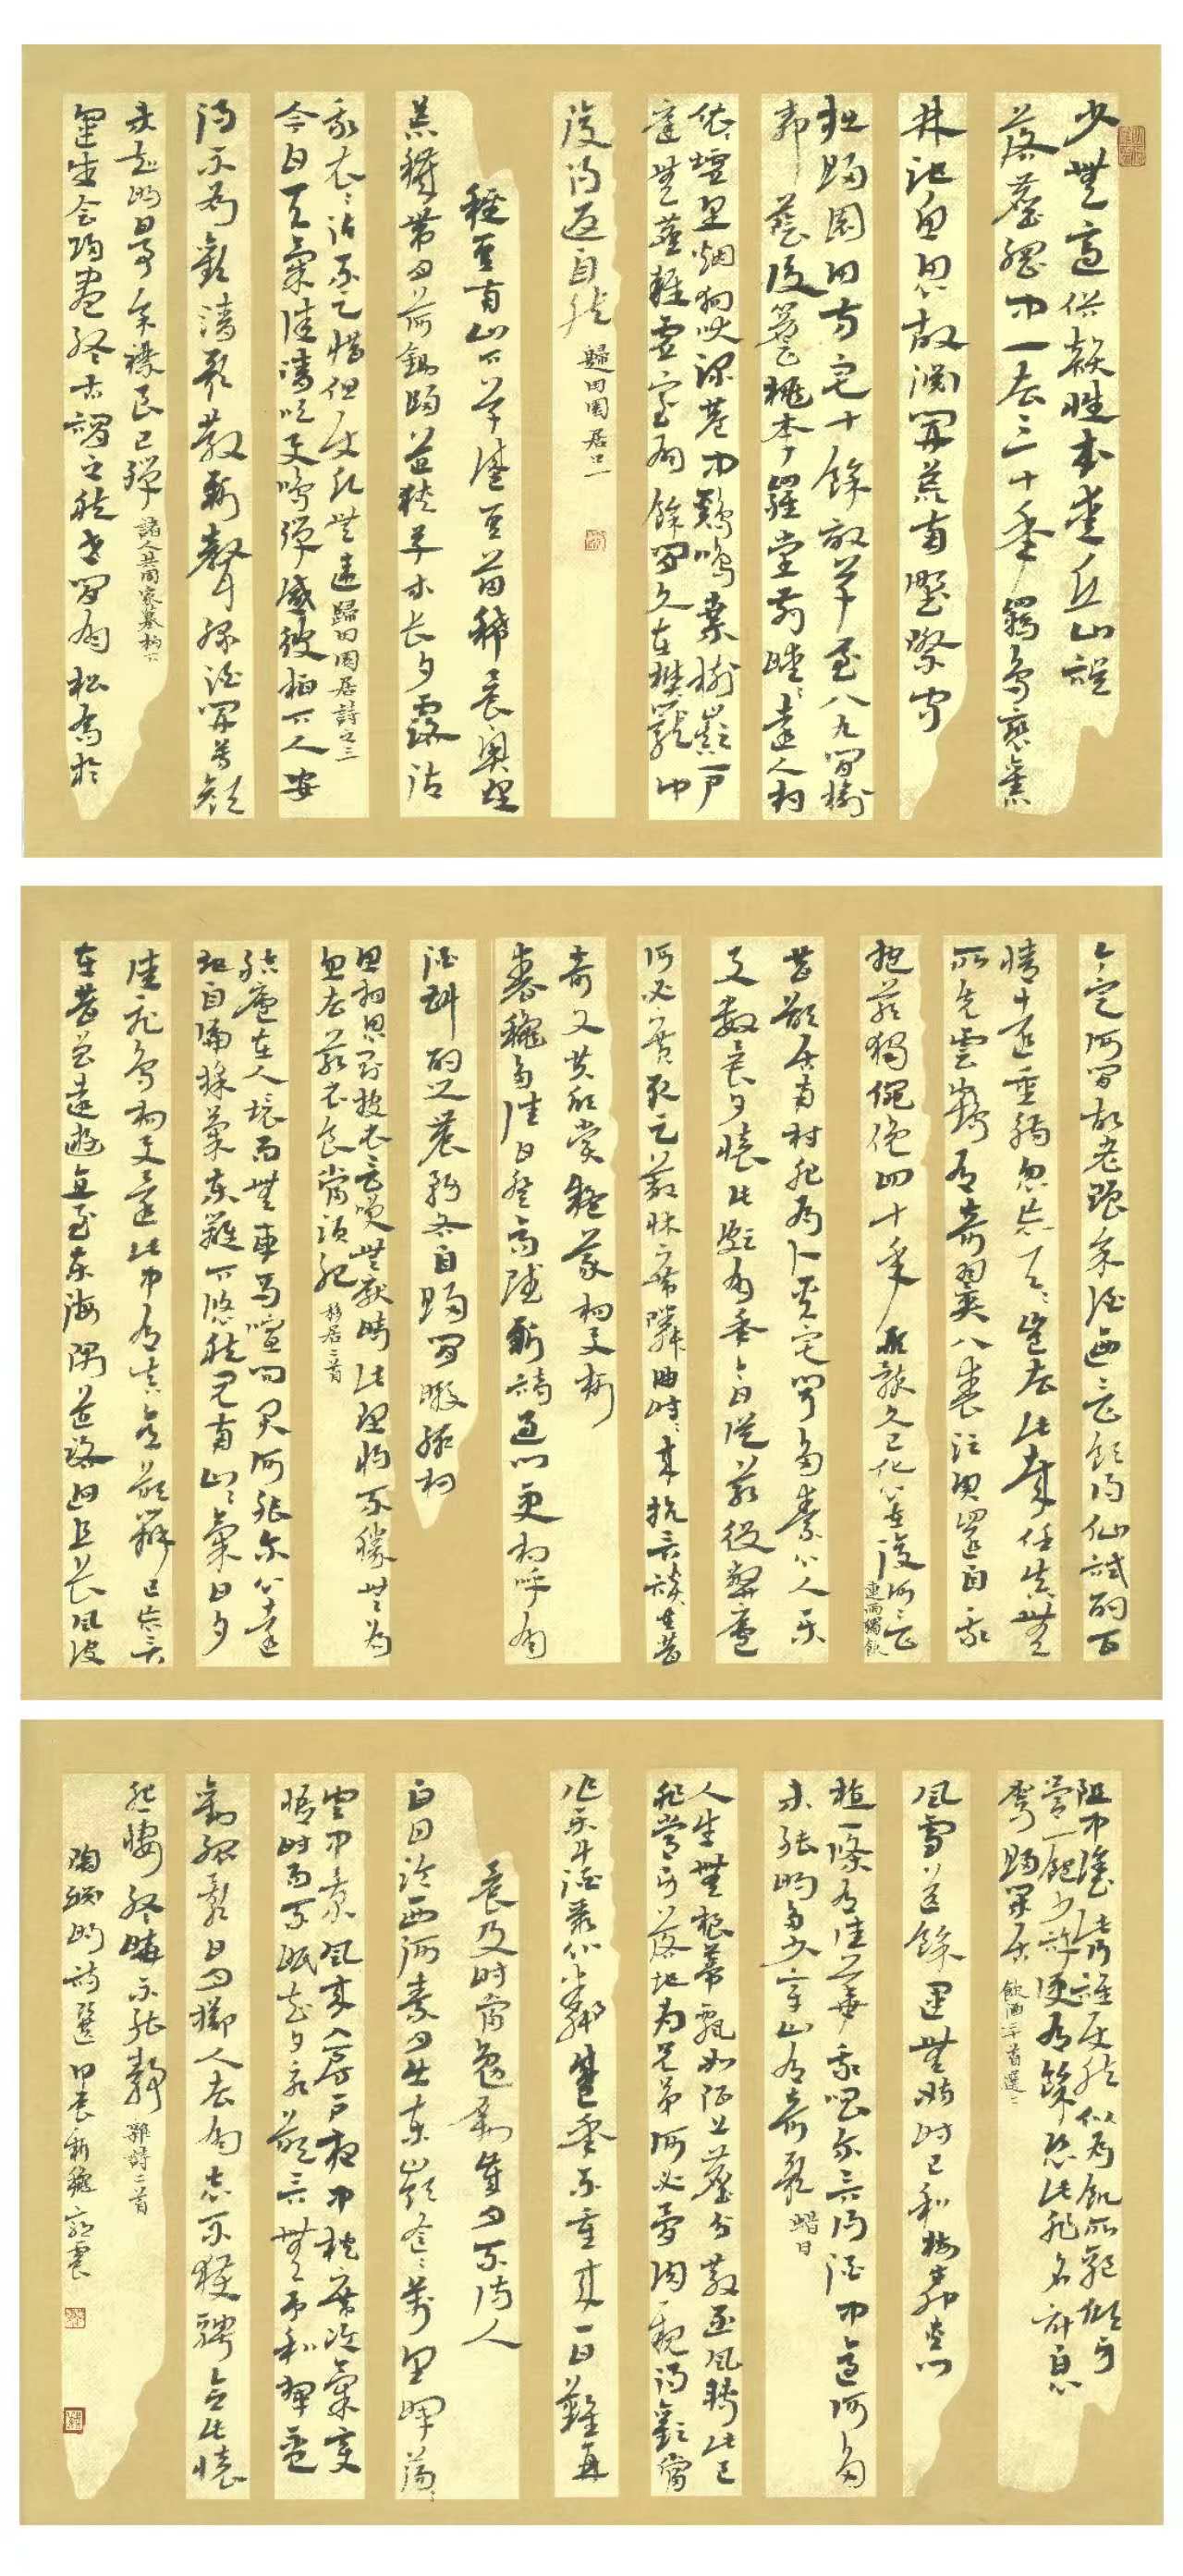 少無適俗韻性本愛丘山誤
落塵網中一去三十年羈鳥戀舊
林池魚思故淵開荒南野際守
拙歸園田方宅十餘畝草屋八九間榆
柳蔭後簷桃李羅堂前曖曖遠人村
依依墟里煙狗吠深巷中雞鳴桑樹巔戶
庭無塵雜虛室有餘閒久在樊籠中
復得返自然 歸田園居之一
種豆南山下草盛豆苗稀晨興理
荒穢帶月荷鋤歸道狹草木長夕露沾
我衣衣沾不足惜但使願無違 歸田園居詩之三
今日天氣佳清吹與鳴彈感彼柏下人安
得不為歡清歌散新聲綠酒開芳顏
未知明日事余襟良已殫 諸人共同家墓柏下
運生會歸盡終古謂之然世間有松喬於
今定何間故老贈余酒乃言飲得仙試酌百
情遠重觴忽忘天天豈去此哉任真無
所先雲鶴有奇翼八表須臾還自我
抱茲獨僶俛四十年形骸久已化心在復何言 連雨獨飲
昔欲居南村非為卜其宅聞多素心人樂
與數晨夕懷此頗有年今日從茲役弊廬
何必廣取足蔽床席鄰曲時時來抗言談在昔
奇文共欣賞疑義相與析
春秋多佳日登高賦新詩過門更相呼有
酒斟酌之農務各自歸閒暇輒相
思相思則披衣言笑無厭時此理將不勝無為
忽去茲衣食當須紀 移居二首
結廬在人境而無車馬喧問君何能爾心遠
地自偏採菊東籬下悠然見南山山氣日夕
佳飛鳥相與還此中有真意欲辨已忘言
在昔曾遠遊直至東海隅道路迥且長風波
阻中塗此行誰使然似為飢所驅傾身
營一飽少許便有餘恐此非名計息
駕歸閒居 飲酒二十首選二
風雪送餘運無妨時已和梅柳夾門
植一條有佳花我唱爾言得酒中適何多
未能明多少章山有奇歌 蜡日
人生無根蒂飄如陌上塵分散逐風轉此已
非常身落地為兄弟何必骨肉親得歡當
作樂斗酒聚比鄰盛年不重來一日難再
晨及時當勉勵歲月不待人
白日淪西河素月出東嶺遙遙萬里暉蕩蕩
空中景風來入房戶夜中枕席冷氣變
悟時易不眠知夕永欲言無予和揮杯
勸孤影日月擲人去有志不獲騁念此懷
悲悽終曉不能靜 雜詩二首
陶淵明詩選 甲辰新秋